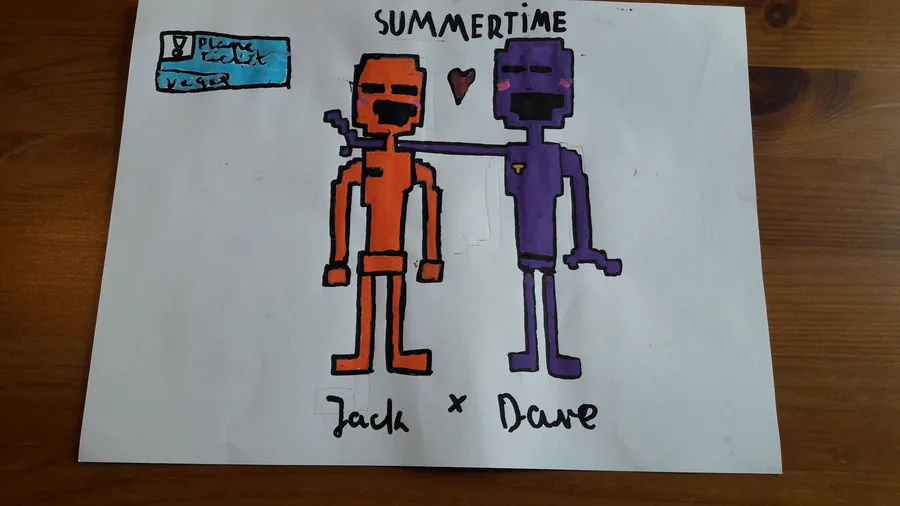 SUMMERTIME
Plane
Ticket
Vegas
Jack x Dave